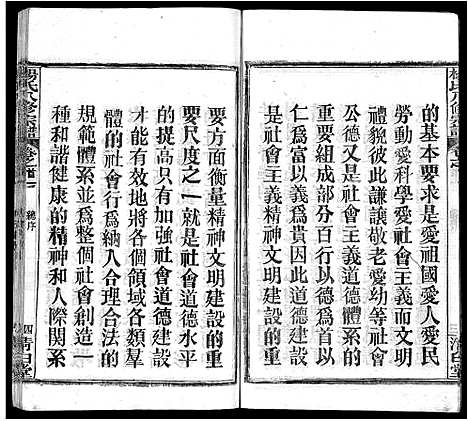 的基本要求是愛祖國愛人愛民
勞動愛科學愛社會主義而文明
禮貌彼此謙讓敬老愛幼等社會
公德又是社會主義道德體系的
重要組成部分百行以德爲首以
仁居之爲貴因此道德建設
是社會主義精神文明建設的重
要方面衡量精神文明建設的重
要尺度之一就是社會道德水平
的提高只有加強社會道德建設
才能有效地將各個領域各類羣
體的社會行爲納入合理合法的
規範體系並爲整個社會創造一
種和諧健康的精神和人際關系
楊氏八修宗譜
總序
四
清白堂